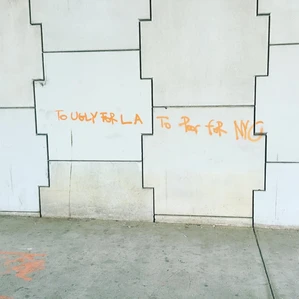 To UGLY FOR LA To Poor for NYC